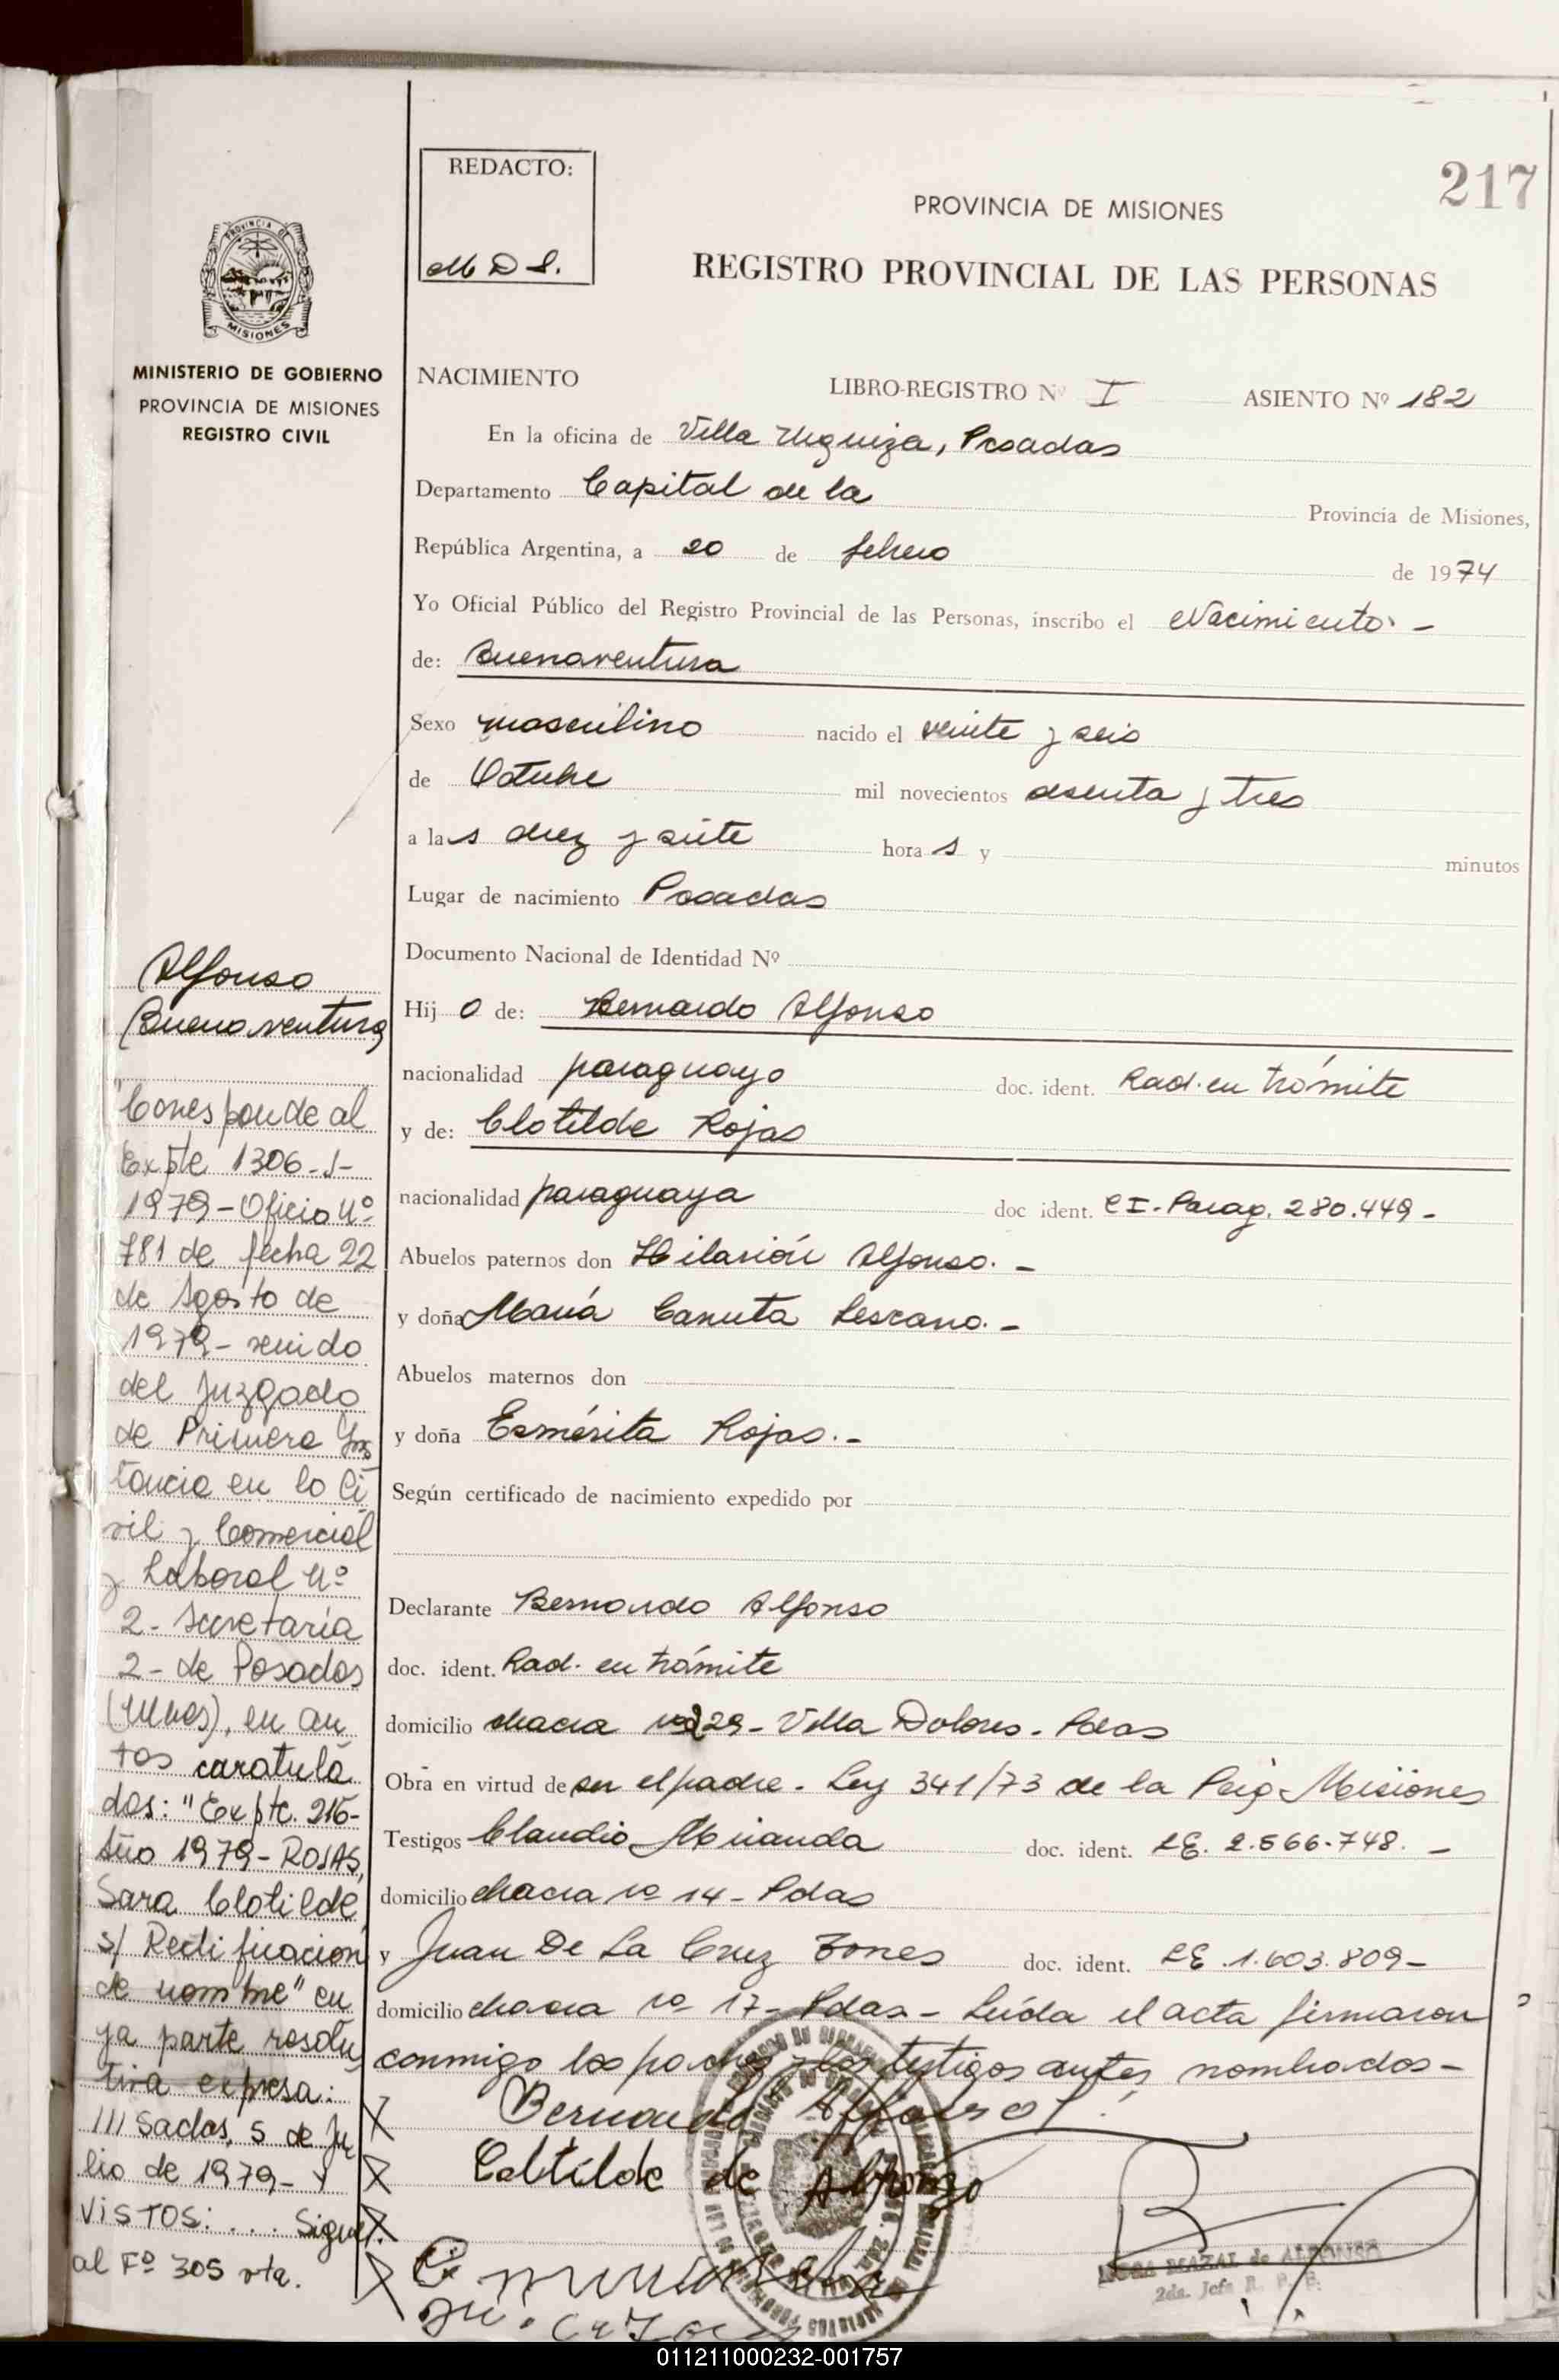 217
REDACTO:
M D S.
PROVINCIA DE MISIONES
REGISTRO PROVINCIAL DE LAS PERSONAS
PROVINCIA DE
MISIONES
MINISTERIO DE GOBIERNO
PROVINCIA DE MISIONES
REGISTRO CIVIL
NACIMIENTO LIBRO-REGISTRO Nº I ASIENTO Nº 182
En la oficina de Villa Urquiza, Posadas
Departamento Capital de la Provincia de Misiones,
República Argentina, a 20 de febrero de 1974
Yo Oficial Público del Registro Provincial de las Personas, inscribo el Nacimiento. -
de: Buenaventura
Sexo masculino nacido el veinte y seis
de Octubre mil novecientos sesenta y tres
a las diez y siete horas y minutos
Lugar de nacimiento Posadas
Documento Nacional de Identidad Nº
Hijo de: Bernardo Alfonso
nacionalidad paraguayo doc. ident. Rad. en trámite
y de: Clotilde Rojas
nacionalidad paraguaya doc ident. CI. Parag. 280.449 -
Abuelos paternos don Hilarión Alfonso. -
y doña María Canuta Lescano. -
Abuelos maternos don
y doña Esmérita Rojas. -
Según certificado de nacimiento expedido por
Declarante Bernardo Alfonso
doc. ident. Rad. en trámite
domicilio chacra 29 - Villa Dolores - Pdas
Obra en virtud de ser el padre. Ley 341/73 de la Misiones
Testigos Claudio Miranda doc. ident. LE. 2.566.748. -
domicilio chacra nº 14 - Pdas
y Juan De La Cruz doc. ident. LE. 1.603.809 -
domicilio chacra nº 17 - Pdas - Leída el acta firmaron
conmigo los padres y los testigos antes nombrados -
Bernardo Alfonso
Coltilde de Alfonzo
MAZAL de ALFONSO
2da. Jefe R. P. P.
Alfonso
Buenaventura
"Corresponde al
Expte 1306-J-
1979 - Oficio Nº
781 de fecha 22
de Agosto de
1979 - venido
del Juzgado
de Primera Ins
tancia en lo Ci
vil y Comercial
y Laboral Nº
2 - Secretaría
2 - de Posadas
(Mnes), en au
tos caratula
dos: "Expte. 216-
Año 1979 - ROJAS,
Sara Clotilde
s/ Rectificación
de nombre" cu
ya parte resolu
tiva expresa:
///sadas, 5 de Ju
lio de 1979 - Y
VISTOS: .... Sigue
al Fº 305 vta.
011211000232-001757